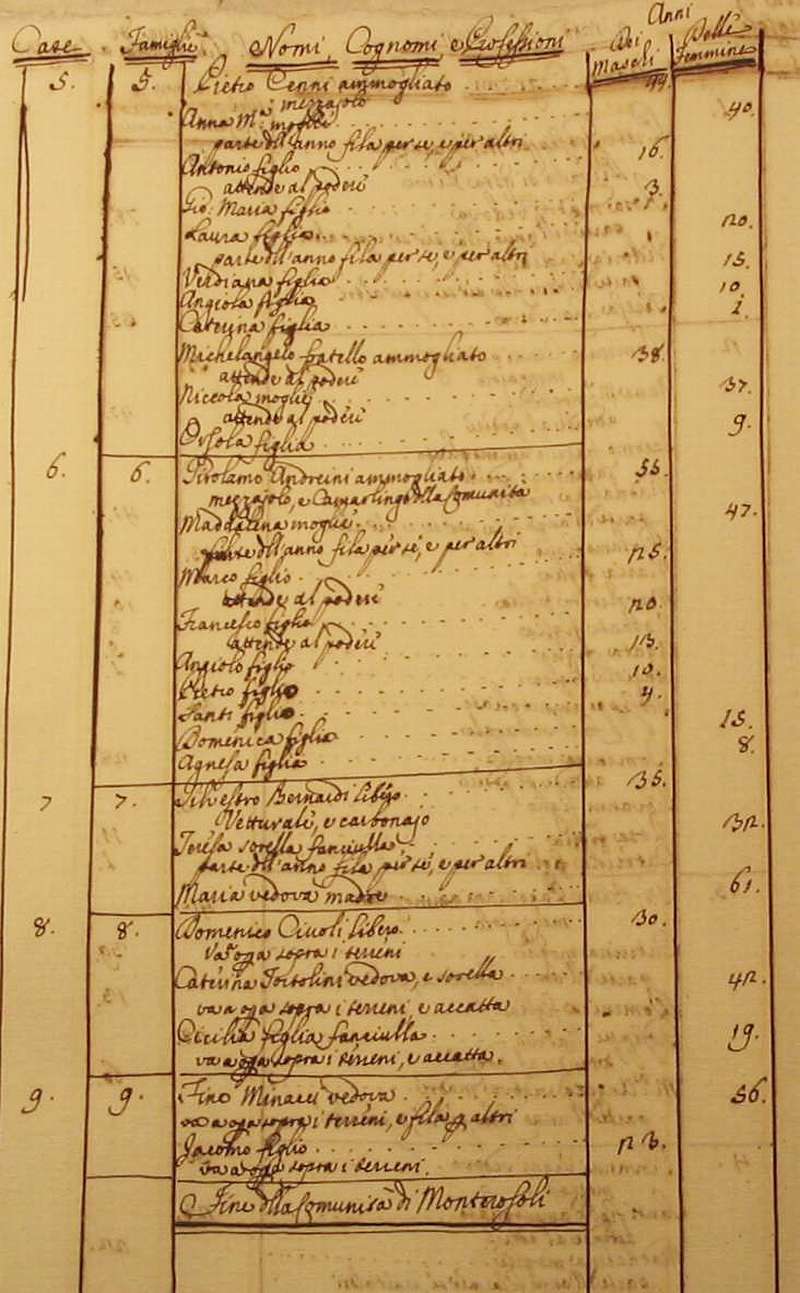 Anni
Case. Famiglie Nomi, Cognomi, e Professioni Dei Maschi Delle Femmine
5. 5. Pietro Cenni ammogliato 44.
mezzajolo
Anna Mª moglie 40.
parte dell'anno fila per se, e per altri
Antonio figlio 16.
attende al poderi
Gio. Maria figlio 3.
Laura figlia 20.
parte dell'anno fila per se, e per altri
Verdiana figlia 15.
Angiola figlia 10.
Caterina figlia 1.
Michelangelo fratello ammogliato 38.
attende al poderi
Niccola moglie 37.
attende al poderi
Orsola figlia 9.
6. 6. Girolamo Andreini ammogliato 55.
mezzajolo, e Camarlingo della Comunità
Maddalena moglie 47.
parte dell'anno fila per se, e per altri
Marco figlio 25.
attende al poderi
Francesco figlio 20
attende al poderi
Angiolo figlio 13.
Pietro figlio 10.
Santi figlio 4.
Domenica figlia 15.
Agnesa figlia 8.
7 7. Silvestro Bernardi libero 35.
Vetturale, e carbonajo
Teresa sorella fanciulla 32.
parte dell'anno fila per se, e per altri
Maria vedova madre 61.
8. 8. Domenico Ciuoli libero 30.
Va a oga sopra i terreni
Caterina vedova, e sorella 42.
va a oga sopra i terreni, e accatta
Cicilia figlia fanciulla 19.
va a oga sopra i terreni, e accatta.
9. 9. Minacci vedova 56.
va a oga sopra i terreni, e fila p altri
Jacomo figlio 23.
va a oga sopra i terreni.
Fine della Comunità di Monterofoli